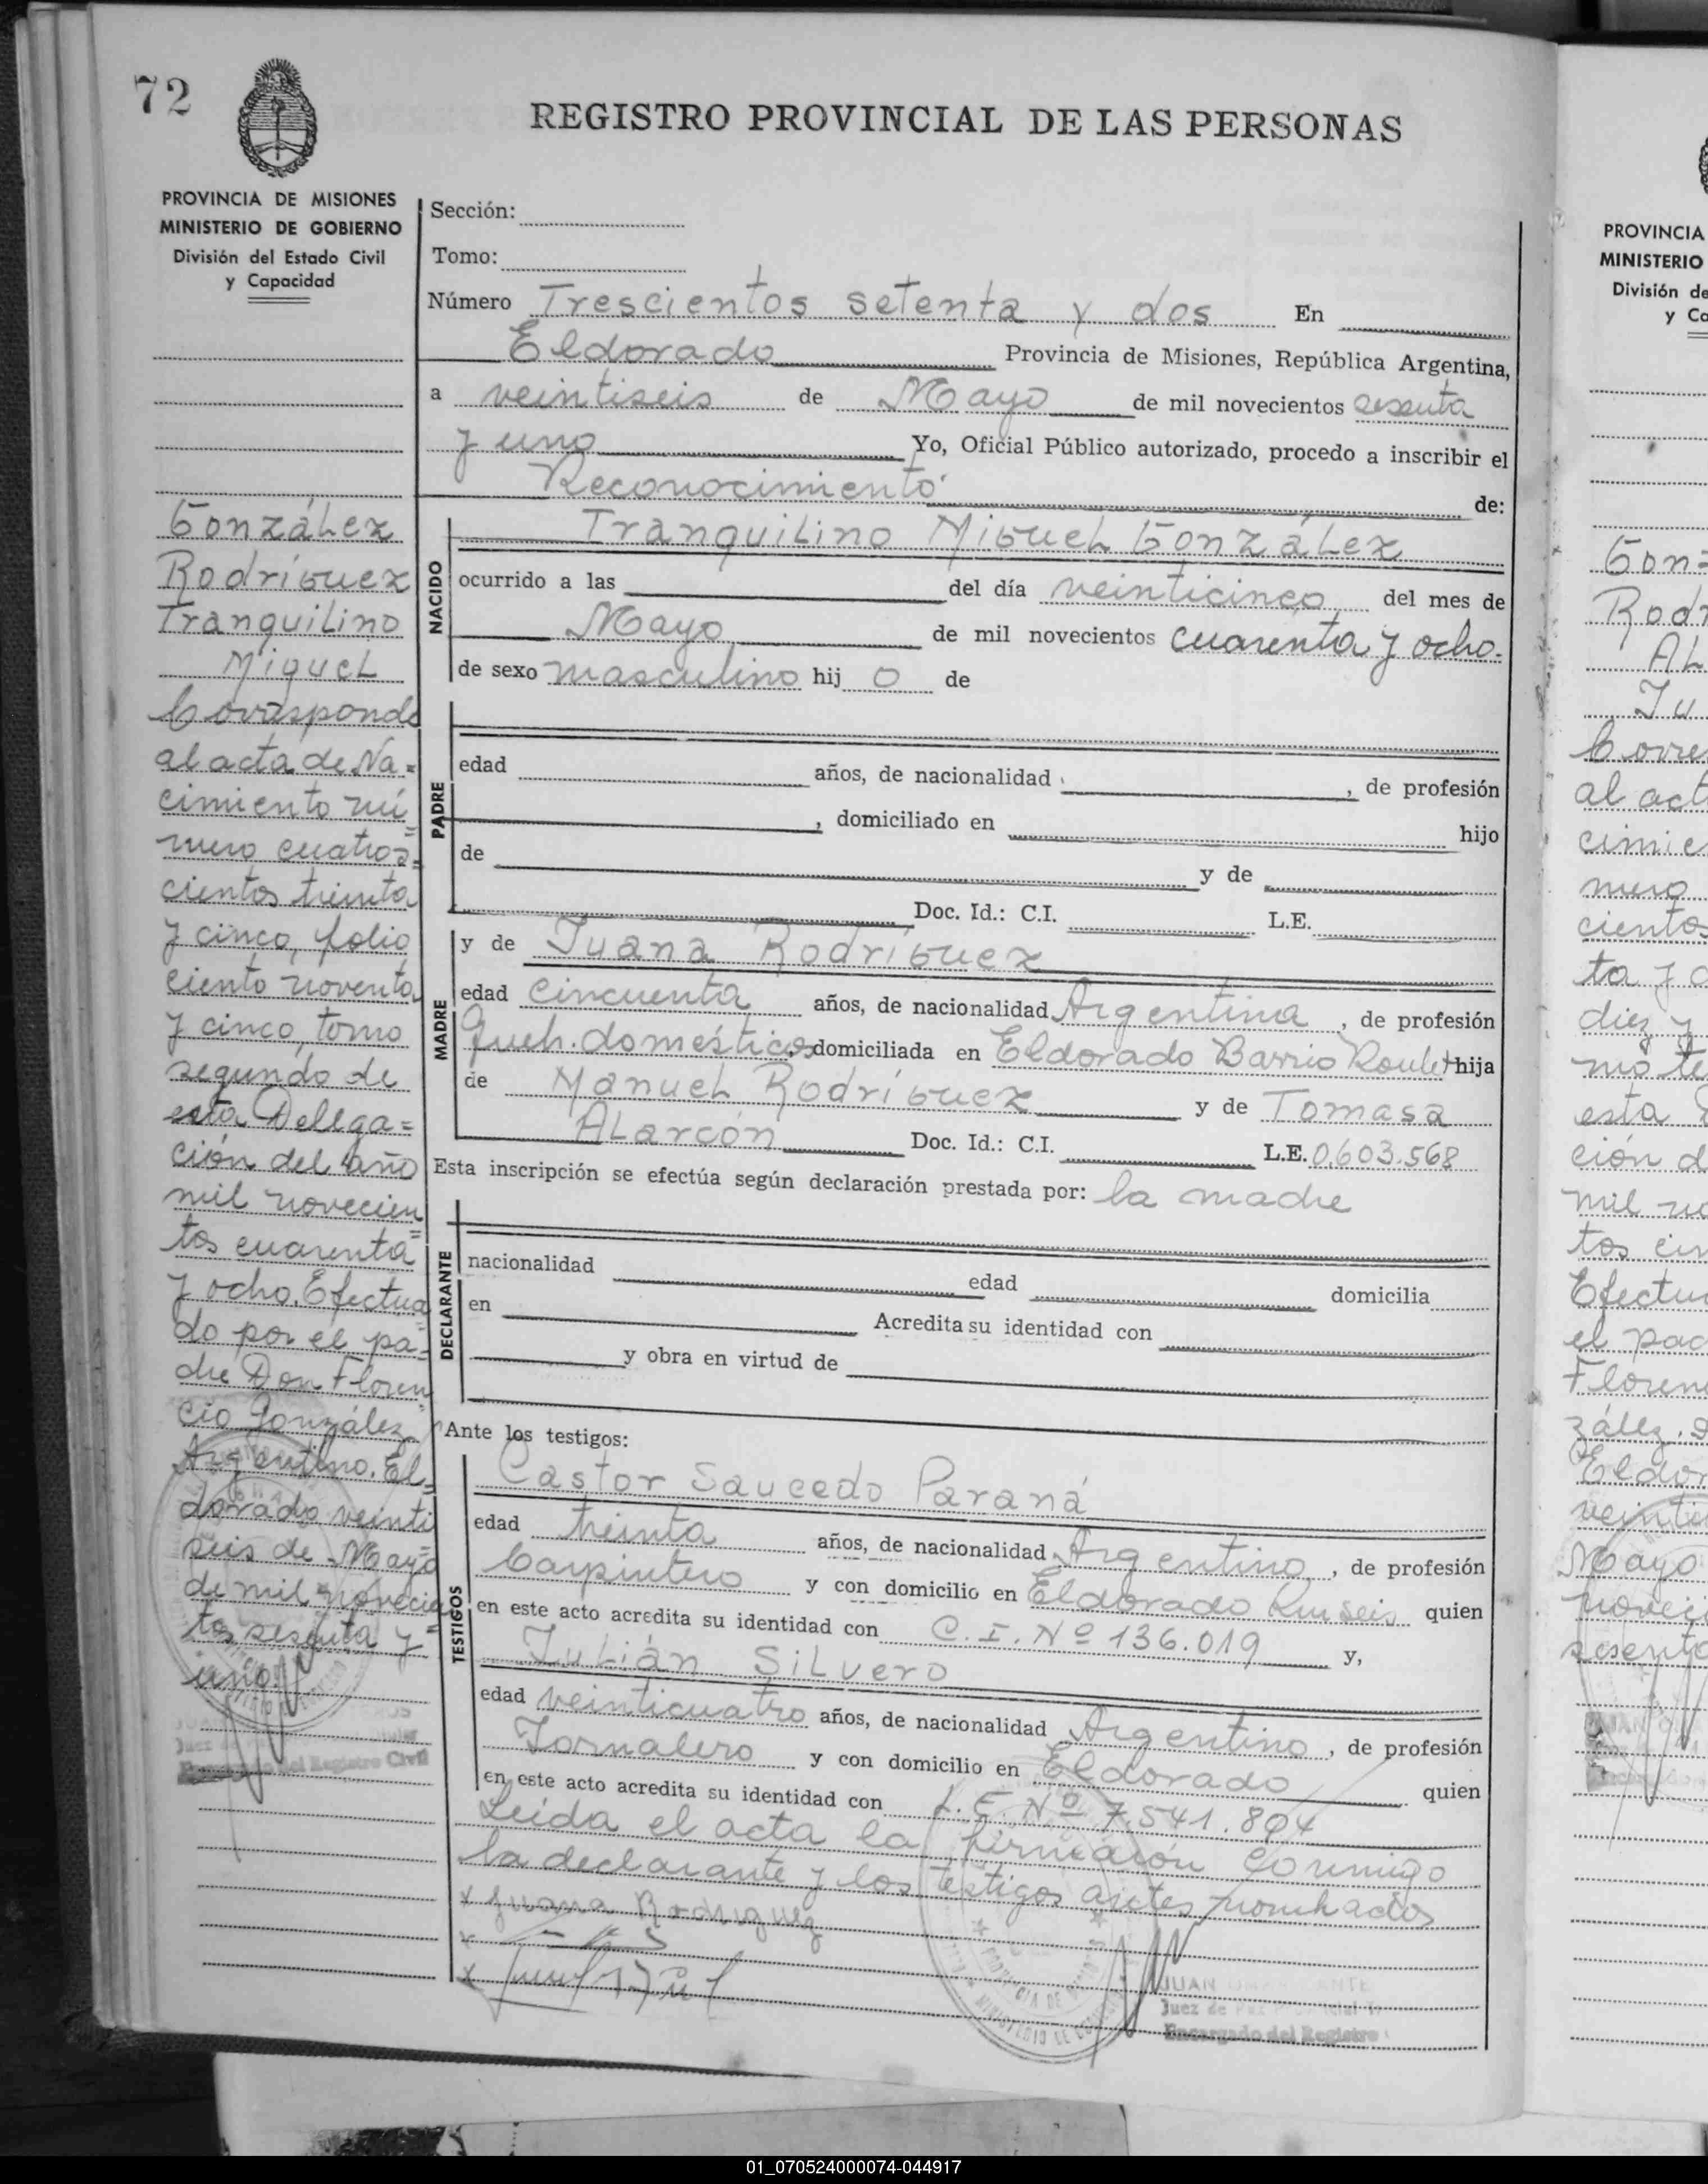 72
REGISTRO PROVINCIAL DE LAS PERSONAS
PROVINCIA DE MISIONES
MINISTERIO DE GOBIERNO
División del Estado Civil
y Capacidad
González
Rodríguez
Tranquilino
Miguel
Corresponde
al acta de Na=
cimiento nú=
mero cuatros=
cientos treinta
y cinco, folio
ciento noventa
y cinco, tomo
segundo de
esta Delega=
ción del año
mil novecien=
tos cuarenta
y ocho. Efectua=
do por el pa=
dre Don Floren
cio González
Argentino. El=
dorado veinti
seis de Mayo
de mil novecien
tos sesenta y
uno.
Encargado del Registro Civil
Sección:
Tomo:
Número Trescientos setenta y dos En
Eldorado Provincia de Misiones, República Argentina,
a veintiseis de Mayo de mil novecientos sesenta
y uno Yo, Oficial Público autorizado, procedo a inscribir el
Reconocimiento de:
NACIDO
Tranquilino Miguel González
ocurrido a las del día veinticinco del mes de
Mayo de mil novecientos cuarenta y ocho.
de sexo masculino hij o de
PADRE
edad años, de nacionalidad , de profesión
, domiciliado en hijo
de y de
Doc. Id.: C.I. L.E.
MADRE
y de Juana Rodríguez
edad cincuenta años, de nacionalidad Argentina, de profesión
Queh. domésticos domiciliada en Eldorado Barrio Roulet hija
de Manuel Rodríguez y de Tomasa
Alarcón Doc. Id.: C.I. L.E. 0.603.568
Esta inscripción se efectúa según declaración prestada por: la madre
DECLARANTE
nacionalidad edad domicilia
en Acredita su identidad con
y obra en virtud de
Ante los testigos:
TESTIGOS
Castor Saucedo Paraná
edad treinta años, de nacionalidad Argentino, de profesión
Carpintero y con domicilio en Eldorado Km seis quien
en este acto acredita su identidad con C.I. Nº 136.019 y,
Julián Silvero
edad veinticuatro años, de nacionalidad Argentino, de profesión
Jornalero y con domicilio en Eldorado quien
en este acto acredita su identidad con L.E. Nº 7.541.804
Leída el acta la firmaron conmigo
la declarante y los testigos antes nombrados
x Juana Rodriguez
x
x
JUAN
Juez de Paz
Encargado del Registro
PROVINCIA
MINISTERIO
División de
y Ca
Gonz
Rodr
AL
Ju
Corre
al act
cimie
mero
cientos
ta y o
diez y
mo te
esta D
ción d
mil no
tos cin
Efectu
el pad
Floren
zález.
Eldor
veinti
Mayo
noveci
sesenta
01_070524000074-044917